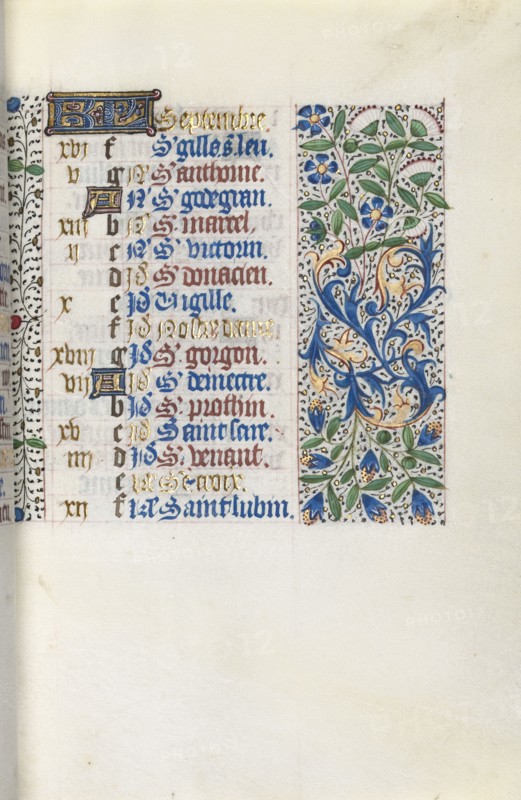 KL Septembre.
xvi f S gilles leu.
v g N S anthoine.
A N S godegran.
xiii b N S marcel.
ii c N S victorin.
d Id S donacien.
x e Id Vigille.
f Id No[st]re dame
xviii g Id S gorgon.
vii A Id S demetre.
b Id S prothin.
xv c Id Saint sere.
iiii d Id S venant.
e N Ste croix.
xii f kl Saint lubin.